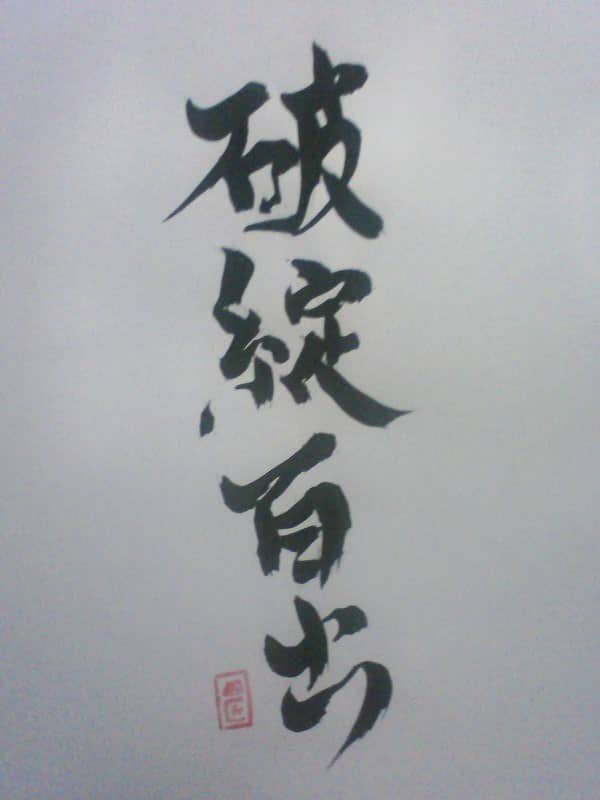 破綻百出